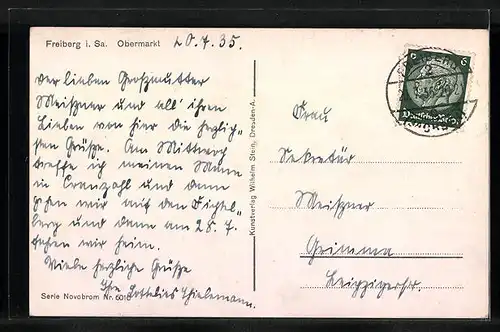 Freiberg i. Sa. Obermarkt 20.7.35.
Der lieben Großmutter
Meißner und all' ihren
Lieben von hier die herzlich-
sten Grüße. Am Mittwoch
treffe ich meinen Mann
in Cranzahl und dann
gehen wir auf den Fichtel-
berg und dann am 28. 7.
fahren wir heim.
Viele herzliche Grüße
Ihre Thielemann.
Serie Novobrom Nr.
Kunstverlag Wilhelm Stein, Dresden-A.
Frau
Sekretär
Meißner
Grimma
Leipzigerstr.
6
Deutsches Reich